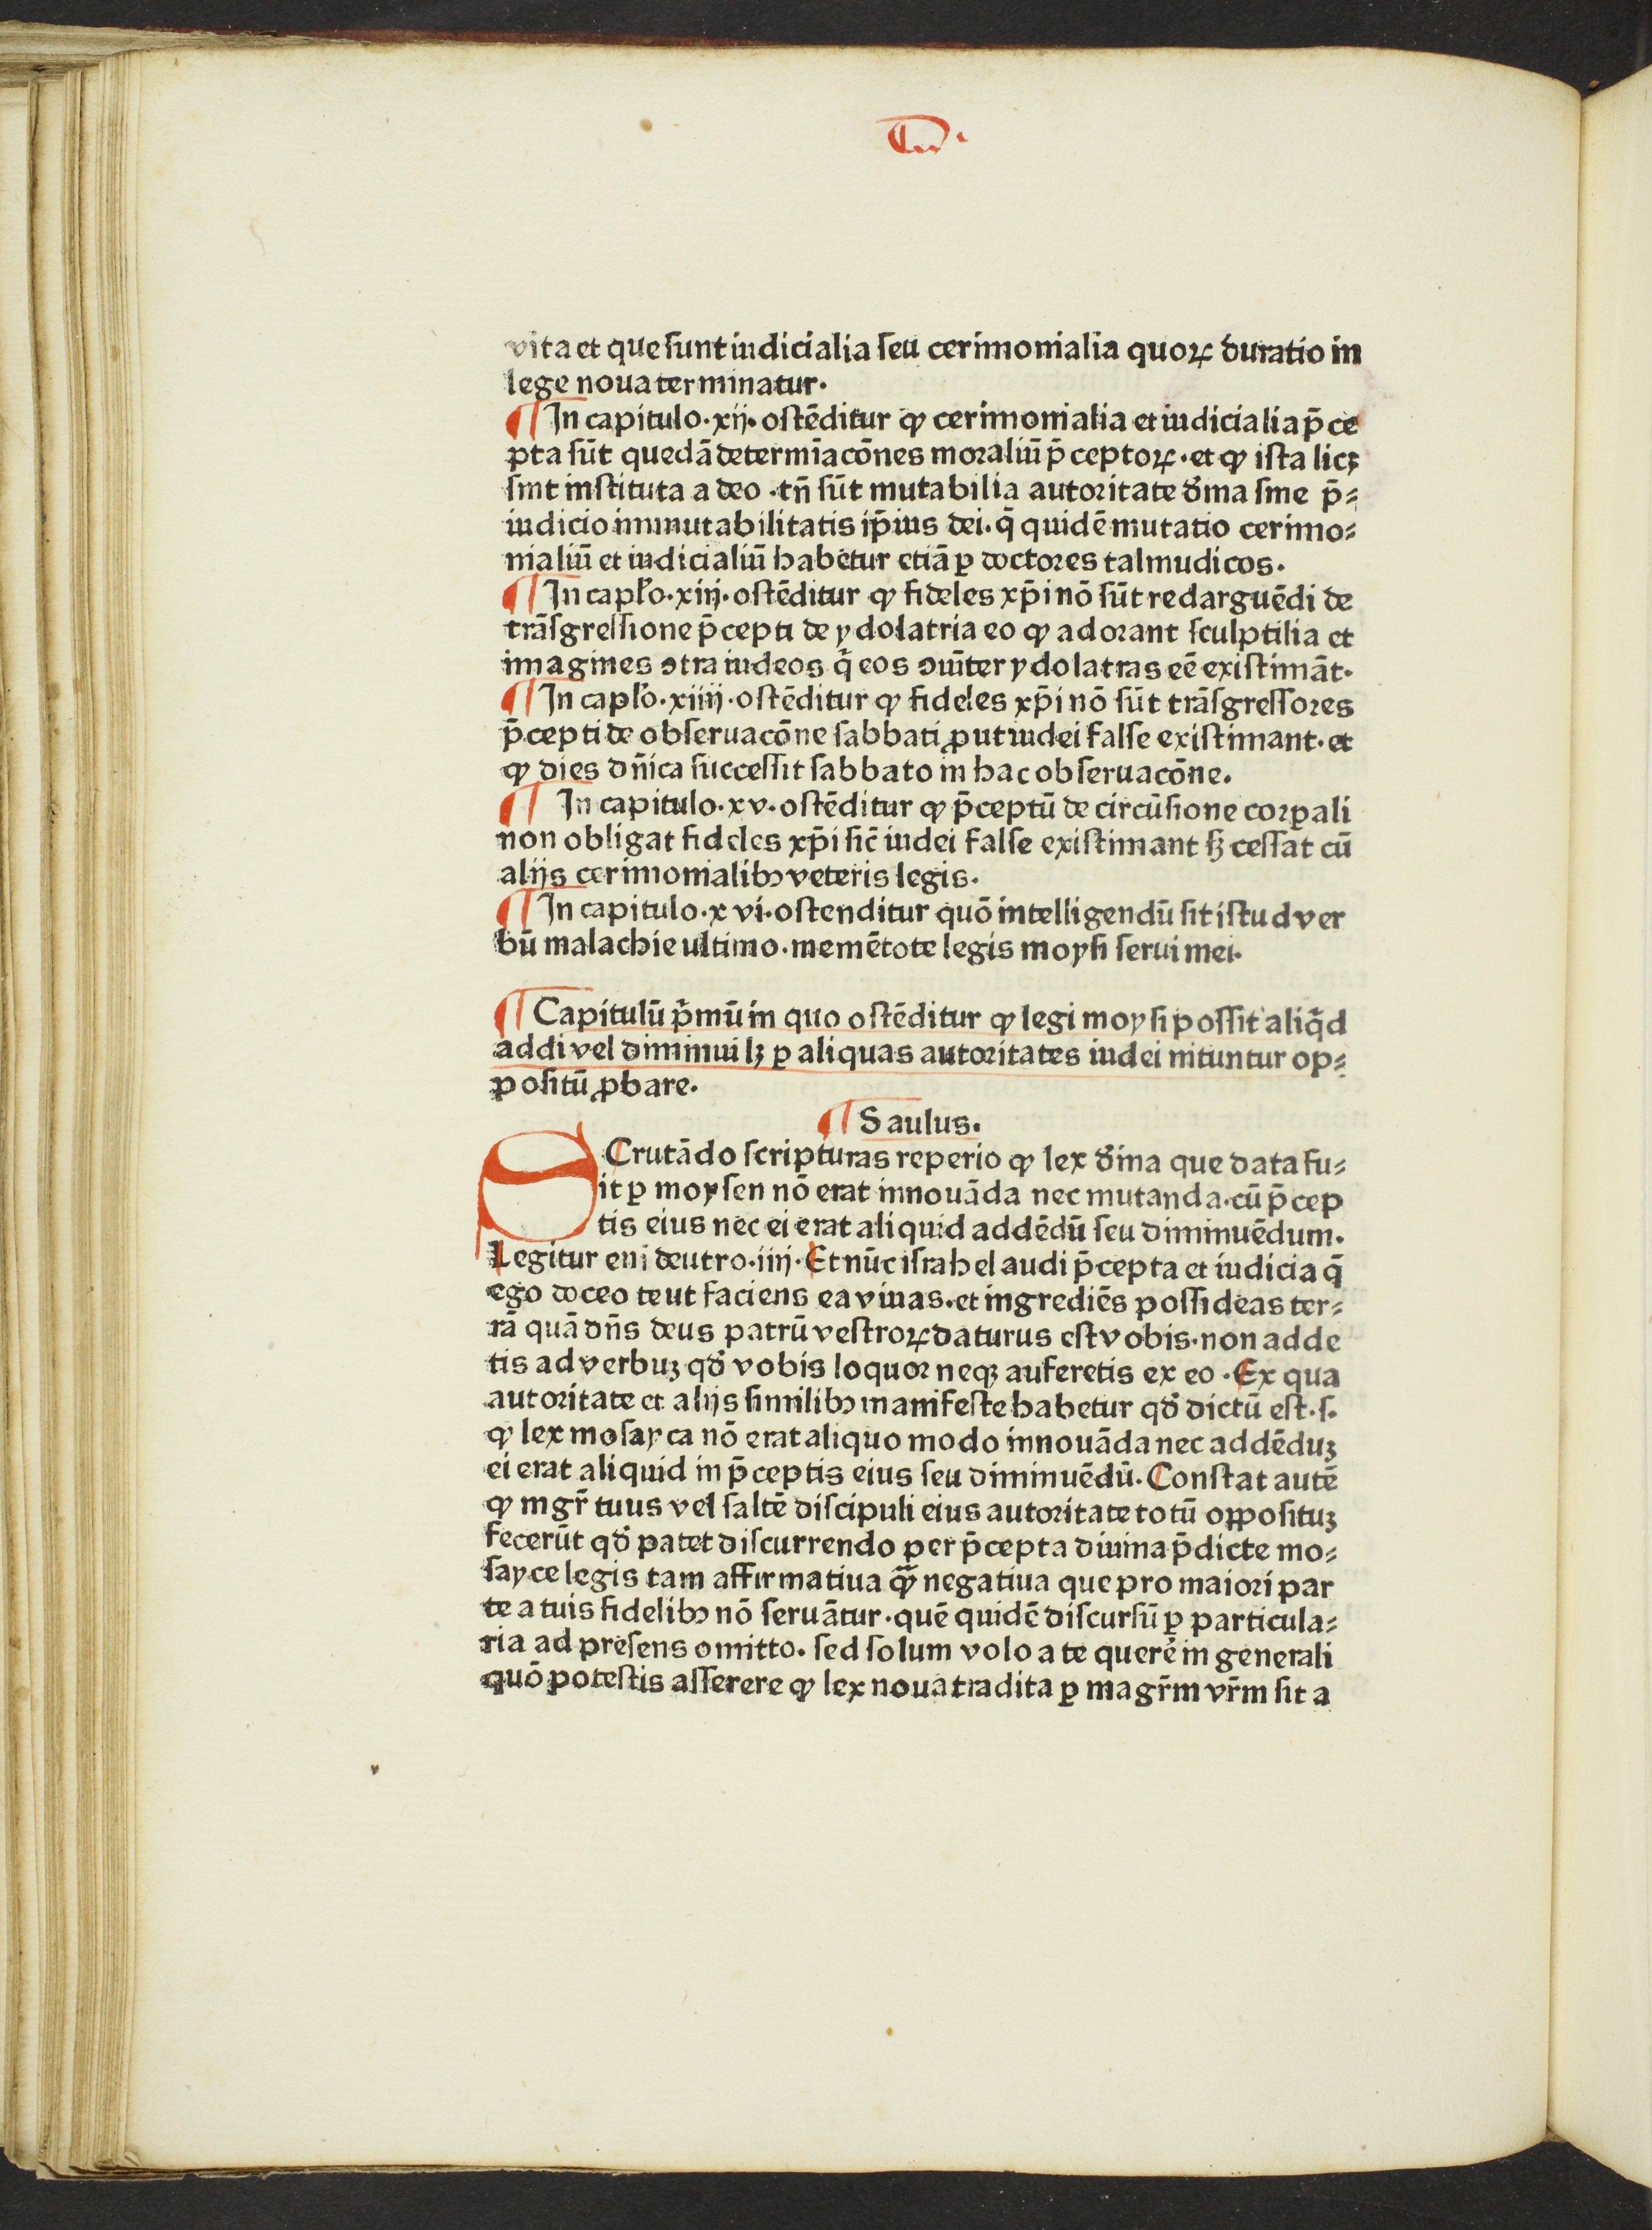 vita et que sunt iudicialia seu cerimonialia quoꝝ duratio in
lege noua terminatur.
¶ In capitulo.xij. ostēditur ꝙ cerimonialia et iudicialia p̄ce
pta sūt quedā determīacōnes moraliū p̄ceptoꝝ.et ꝙ ista licꝫ
sint instituta a deo.tn̄ sūt mutabilia autoritate d̾ina sine p̄⸗
iudicio inmutabilitatis ip̄ius dei.q̄ quidē mutatio cerimo⸗
nialiū et iudicialiū habetur etiā ꝑ doctores talmudicos.
¶ In capl̓o.xiij.ostēditur ꝙ fideles xp̄i nō sūt redarguēdi de
trāsgressione p̄cepti de ydolatria eo ꝙ adorant sculptilia et
imagines ↄtra iudeos q̇ eos ↄūiter ydolatras eē existimāt.
¶ In capl̓o.xiiij.ostēditur ꝙ fideles xp̄i nō sūt trāsgressores
p̄cepti de obseruacōne sabbati ꝓut iudei false existimant.et
ꝙ dies dn̄ica successit sabbato in hac obseruacōne.
¶ In capitulo.xv.ostēditur ꝙ p̄ceptū de circūsione corꝑali
non obligat fideles xp̄i sic̄ iudei false existimant sꝫ cessat cū
alijs cerimonialibꝰ veteris legis.
¶ In capitulo.xvi.ostenditur quō intelligendū sit istud ver
bū malachie ultimo.memētote legis moysi serui mei.
¶ Capitulū p̓mū in quo ostēditur ꝙ legi moysi possit aliq̓d
addi vel diminui lꝫ ꝑ aliquas autoritates iudei nituntur op⸗
positū ꝓbare.
¶ Saulus.
SCrutādo scripturas reperio ꝙ lex d̾ina que data fu⸗
it ꝑ moysen nō erat innouāda nec mutanda.cū p̄cep
tis eius nec ei erat aliquid addēdū seu diminuēdum.
Legitur eni deutro.iiij.Et nūc israhel audi p̄cepta et iudicia q̄
ego doceo te ut faciens ea viuas.et ingrediēs possideas ter⸗
rā quā dn̄s deus patrū vestroꝝ daturus est vobis.non adde
tis ad verbuꝫ qd̾ vobis loquor neqꝫ auferetis ex eo.Ex qua
autoritate et alijs similibꝰ manifeste habetur qd̾ dictū est.s.
ꝙ lex mosayca nō erat aliquo modo innouāda nec addēduꝫ
ei erat aliquid in p̄ceptis eius seu diminuēdū.Constat autē
ꝙ mgr̄ tuus vel saltē discipuli eius autoritate totū opposituꝫ
fecerūt qd̾ patet discurrendo per p̄cepta diuina p̄dicte mo⸗
sayce legis tam affirmatiua ꝙ̄ negatiua que pro maiori par
te a tuis fidelibꝰ nō seruātur.quē quidē discursū ꝑ particula⸗
ria ad presens omitto.sed solum volo a te querē in generali
quō potestis asserere ꝙ lex noua tradita ꝑ magr̄m vr̄m sit a